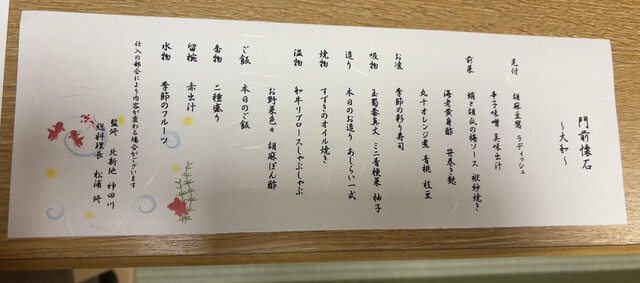 門前懐石
～大和～
先付 胡麻豆腐 ラディッシュ
辛子味噌 美味出汁
前菜 蛸と胡瓜の梅ソース 袱紗焼き
海老黄身酢 笹巻き麩
丸十オレンジ煮 青桃 枝豆
お凌 季節の彩り寿司
吸物 玉蜀黍真丈 ミニ青梗菜 柚子
造り 本日のお造り あしらい一式
焼物 すずきのオイル焼き
温物 和牛リブロースしゃぶしゃぶ
お野菜色々 胡麻ぽん酢
ご飯 本日のご飯
香物 二種盛り
留椀 赤出汁
水物 季節のフルーツ
仕入の都合により内容が変わる場合がございます
監修 北新地 神田川
総料理長 松浦 修